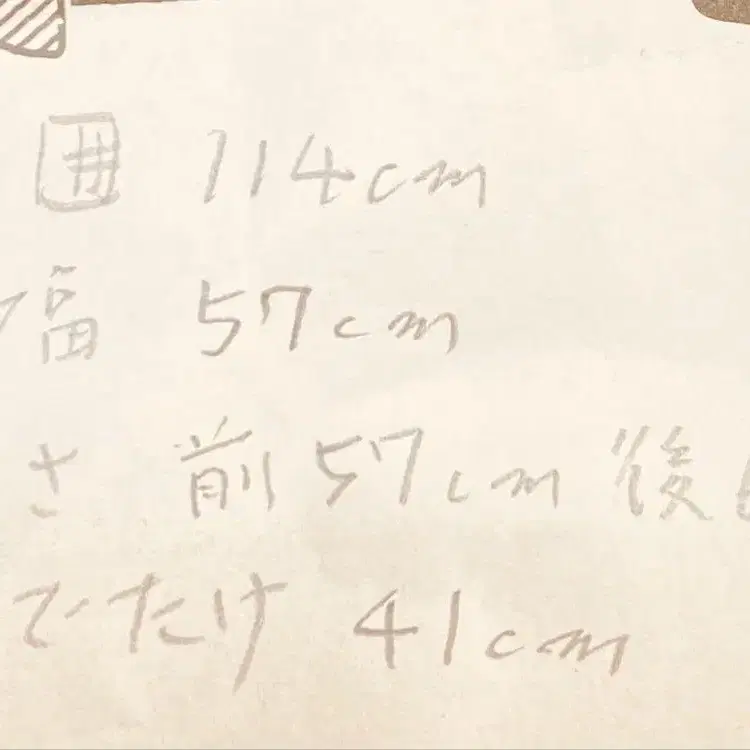 囲 114cm
幅 57cm
さ 前57cm 後
でたけ 41cm